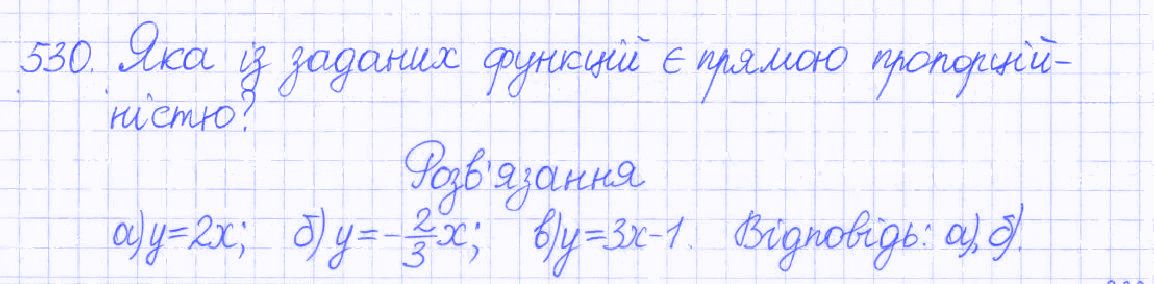 530. Яка із заданих функцій є прямою пропорцій-
ністю?
Розв'язання
а) y=2x; б) y=-2/3x; в) y=3x-1. Відповідь: а), б).